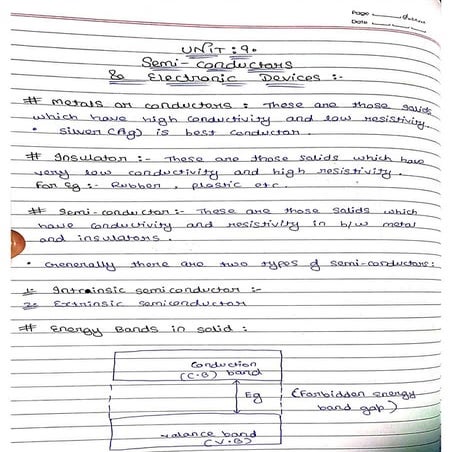 Page
Date
UNIT : 9.
Semi-conductors
& Electronic Devices :-
# Metals or conductors : These are those solids
which have high conductivity and low resistivity.
• Silver (Ag) is best conductor.
# Insulator :- These are those solids which have
very low conductivity and high resistivity.
For Eg :- Rubber, plastic etc.
# Semi-conductor :- These are those solids which
have conductivity and resistivity in b/w metal
and insulators.
• Generally there are two types of semi-conductors:
1:- Intrinsic semiconductor :-
2:- Extrinsic semiconductor
# Energy Bands in solid :
Conduction
(C.B) band
Eg
(Forbidden energy
band gap)
valance band
(V.B)